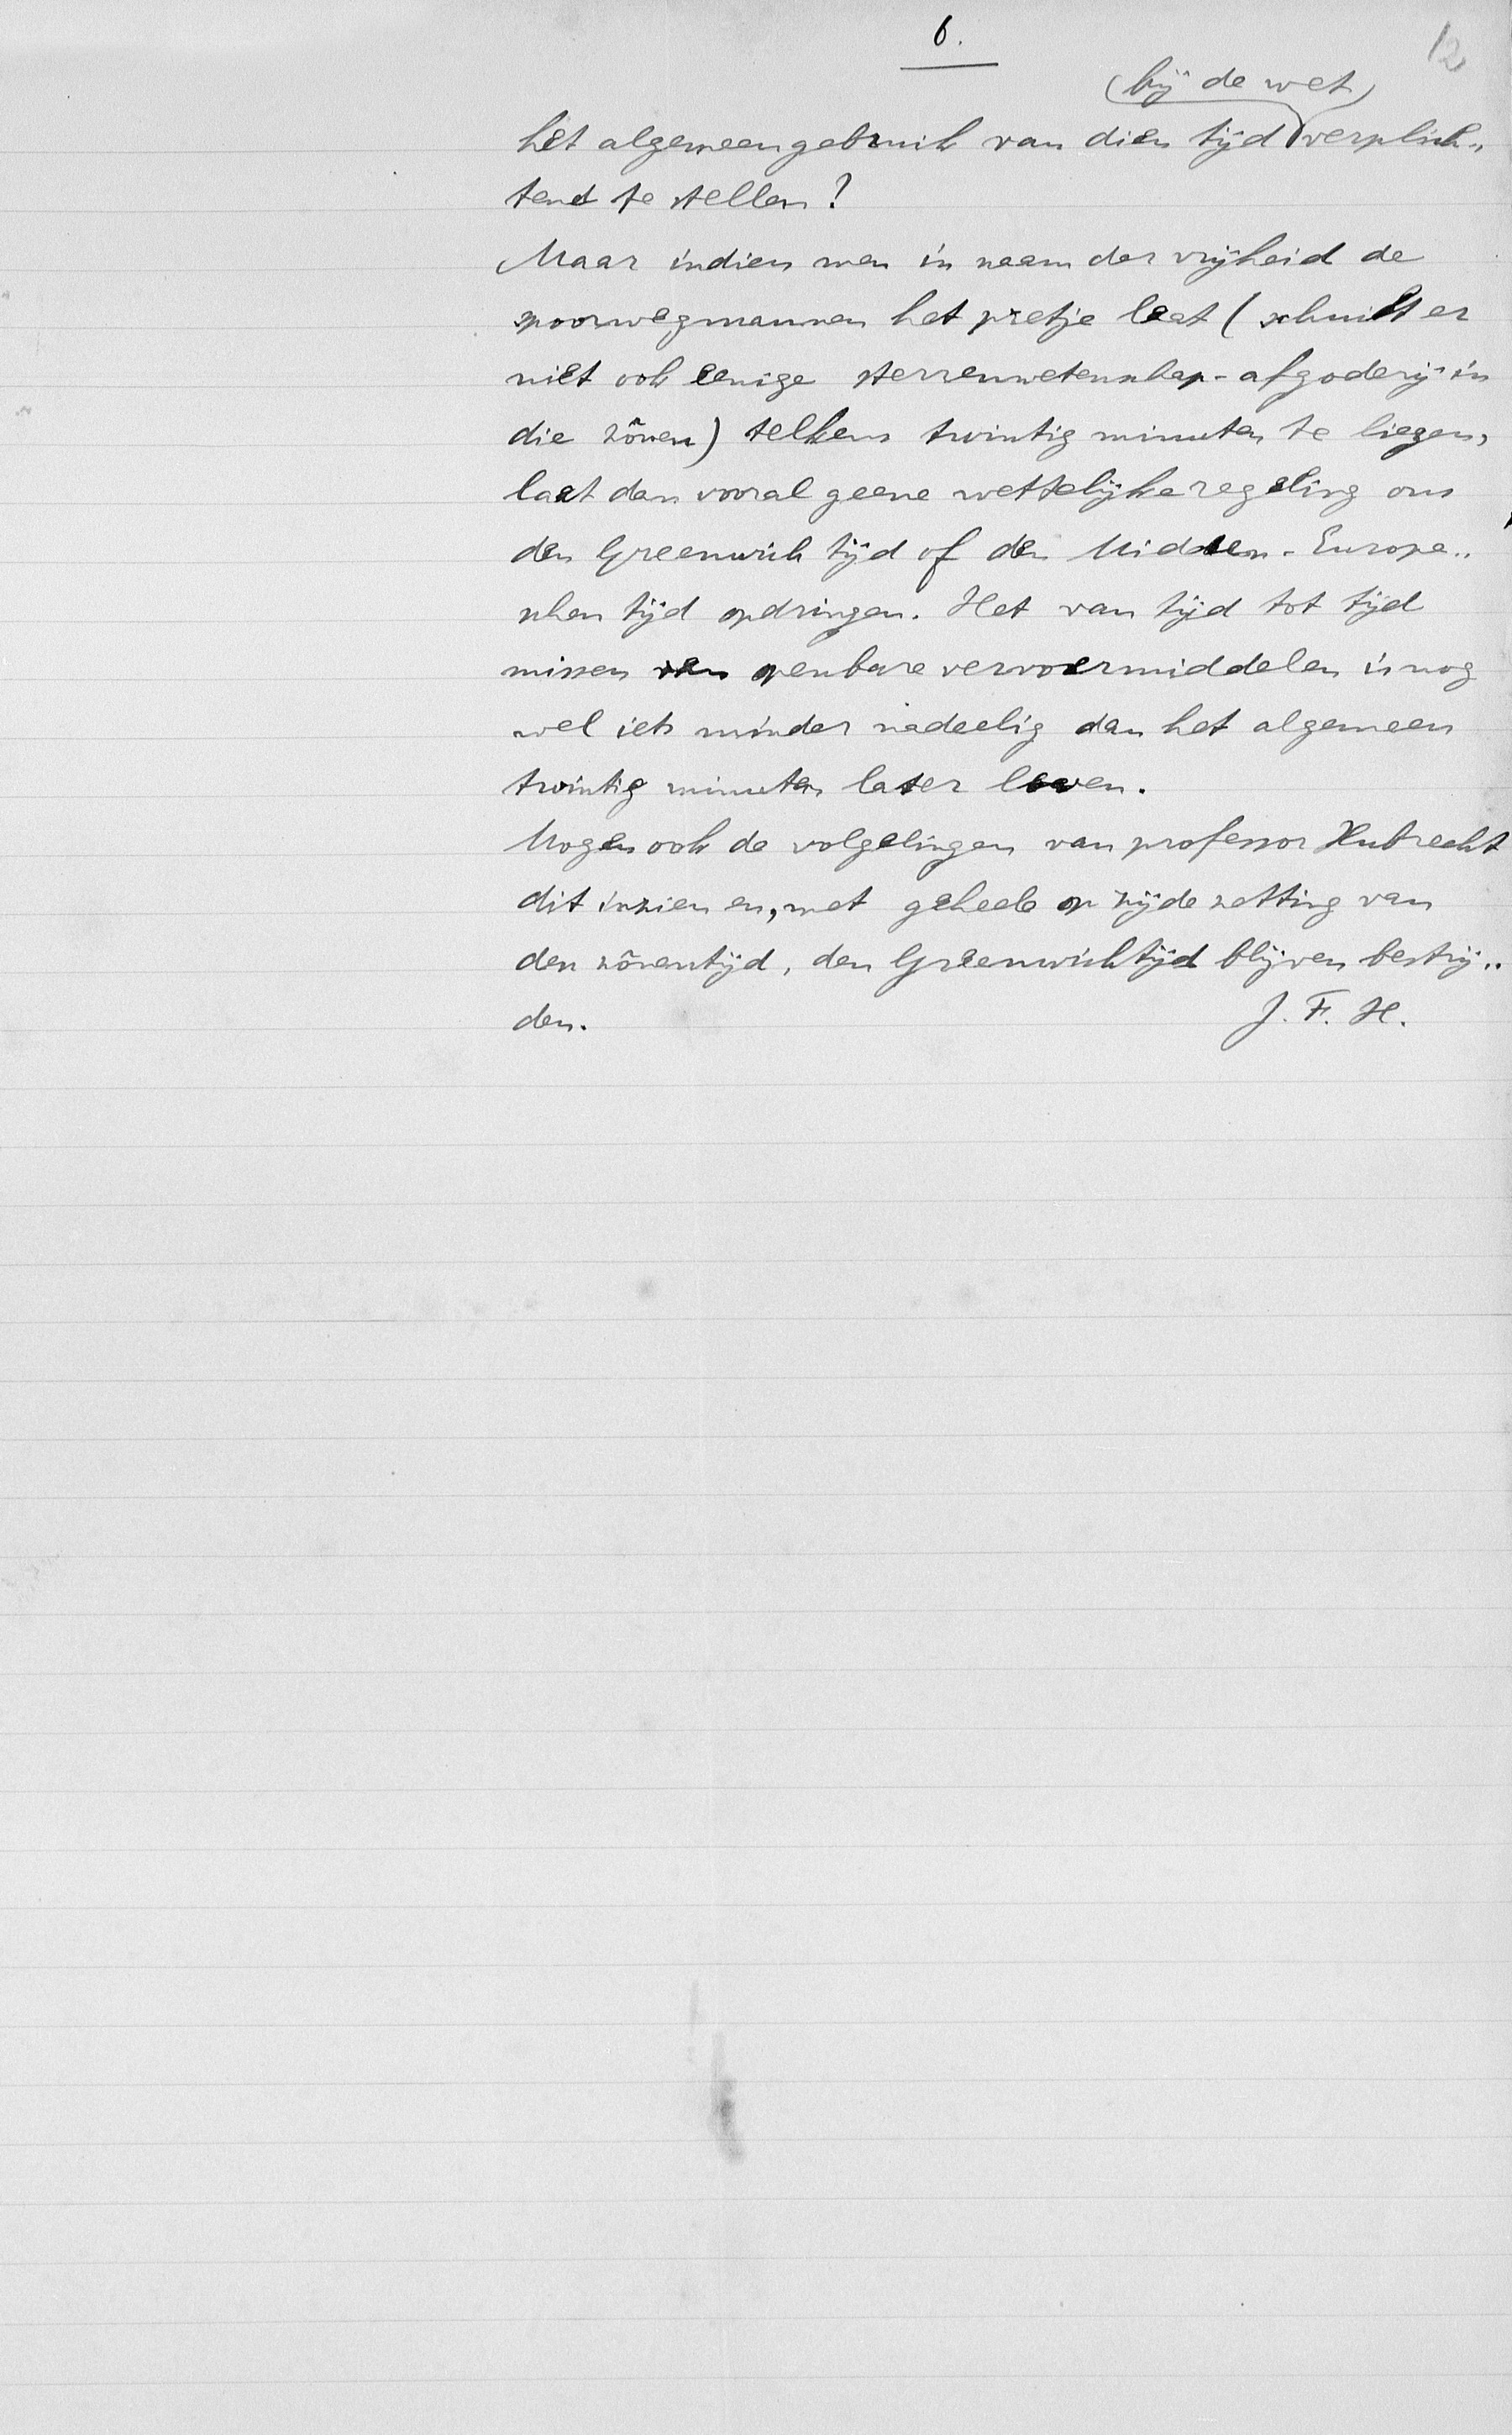 6.
12
(bij de wet)
het algemeen gebruik van dien tijd verplich„
tend te stellen?
Maar indien men in naam der vrijheid de
spoorwegmannen het pretje laat (schuilt er
niet ook eenige sterrenwetenschap-afgoderij in
die zônen) telkens twintig minuten te liegen,
laat dan vooral geene wettelijke regeling ons
den Greenwich tijd of den Midden-Europe„
schen tijd opdringen. Het van tijd tot tijd
missen van openbare vervoermiddelen is nog
wel iets minder nadeelig dan het algemeen
twintig minuten later leven.
Mogen ook de volgelingen van professor Hubrecht
dit inzien en, met geheele op zijde zetting van
den zônentijd, den Greenwichtijd blijven bestrij„
den.
J. F. H.